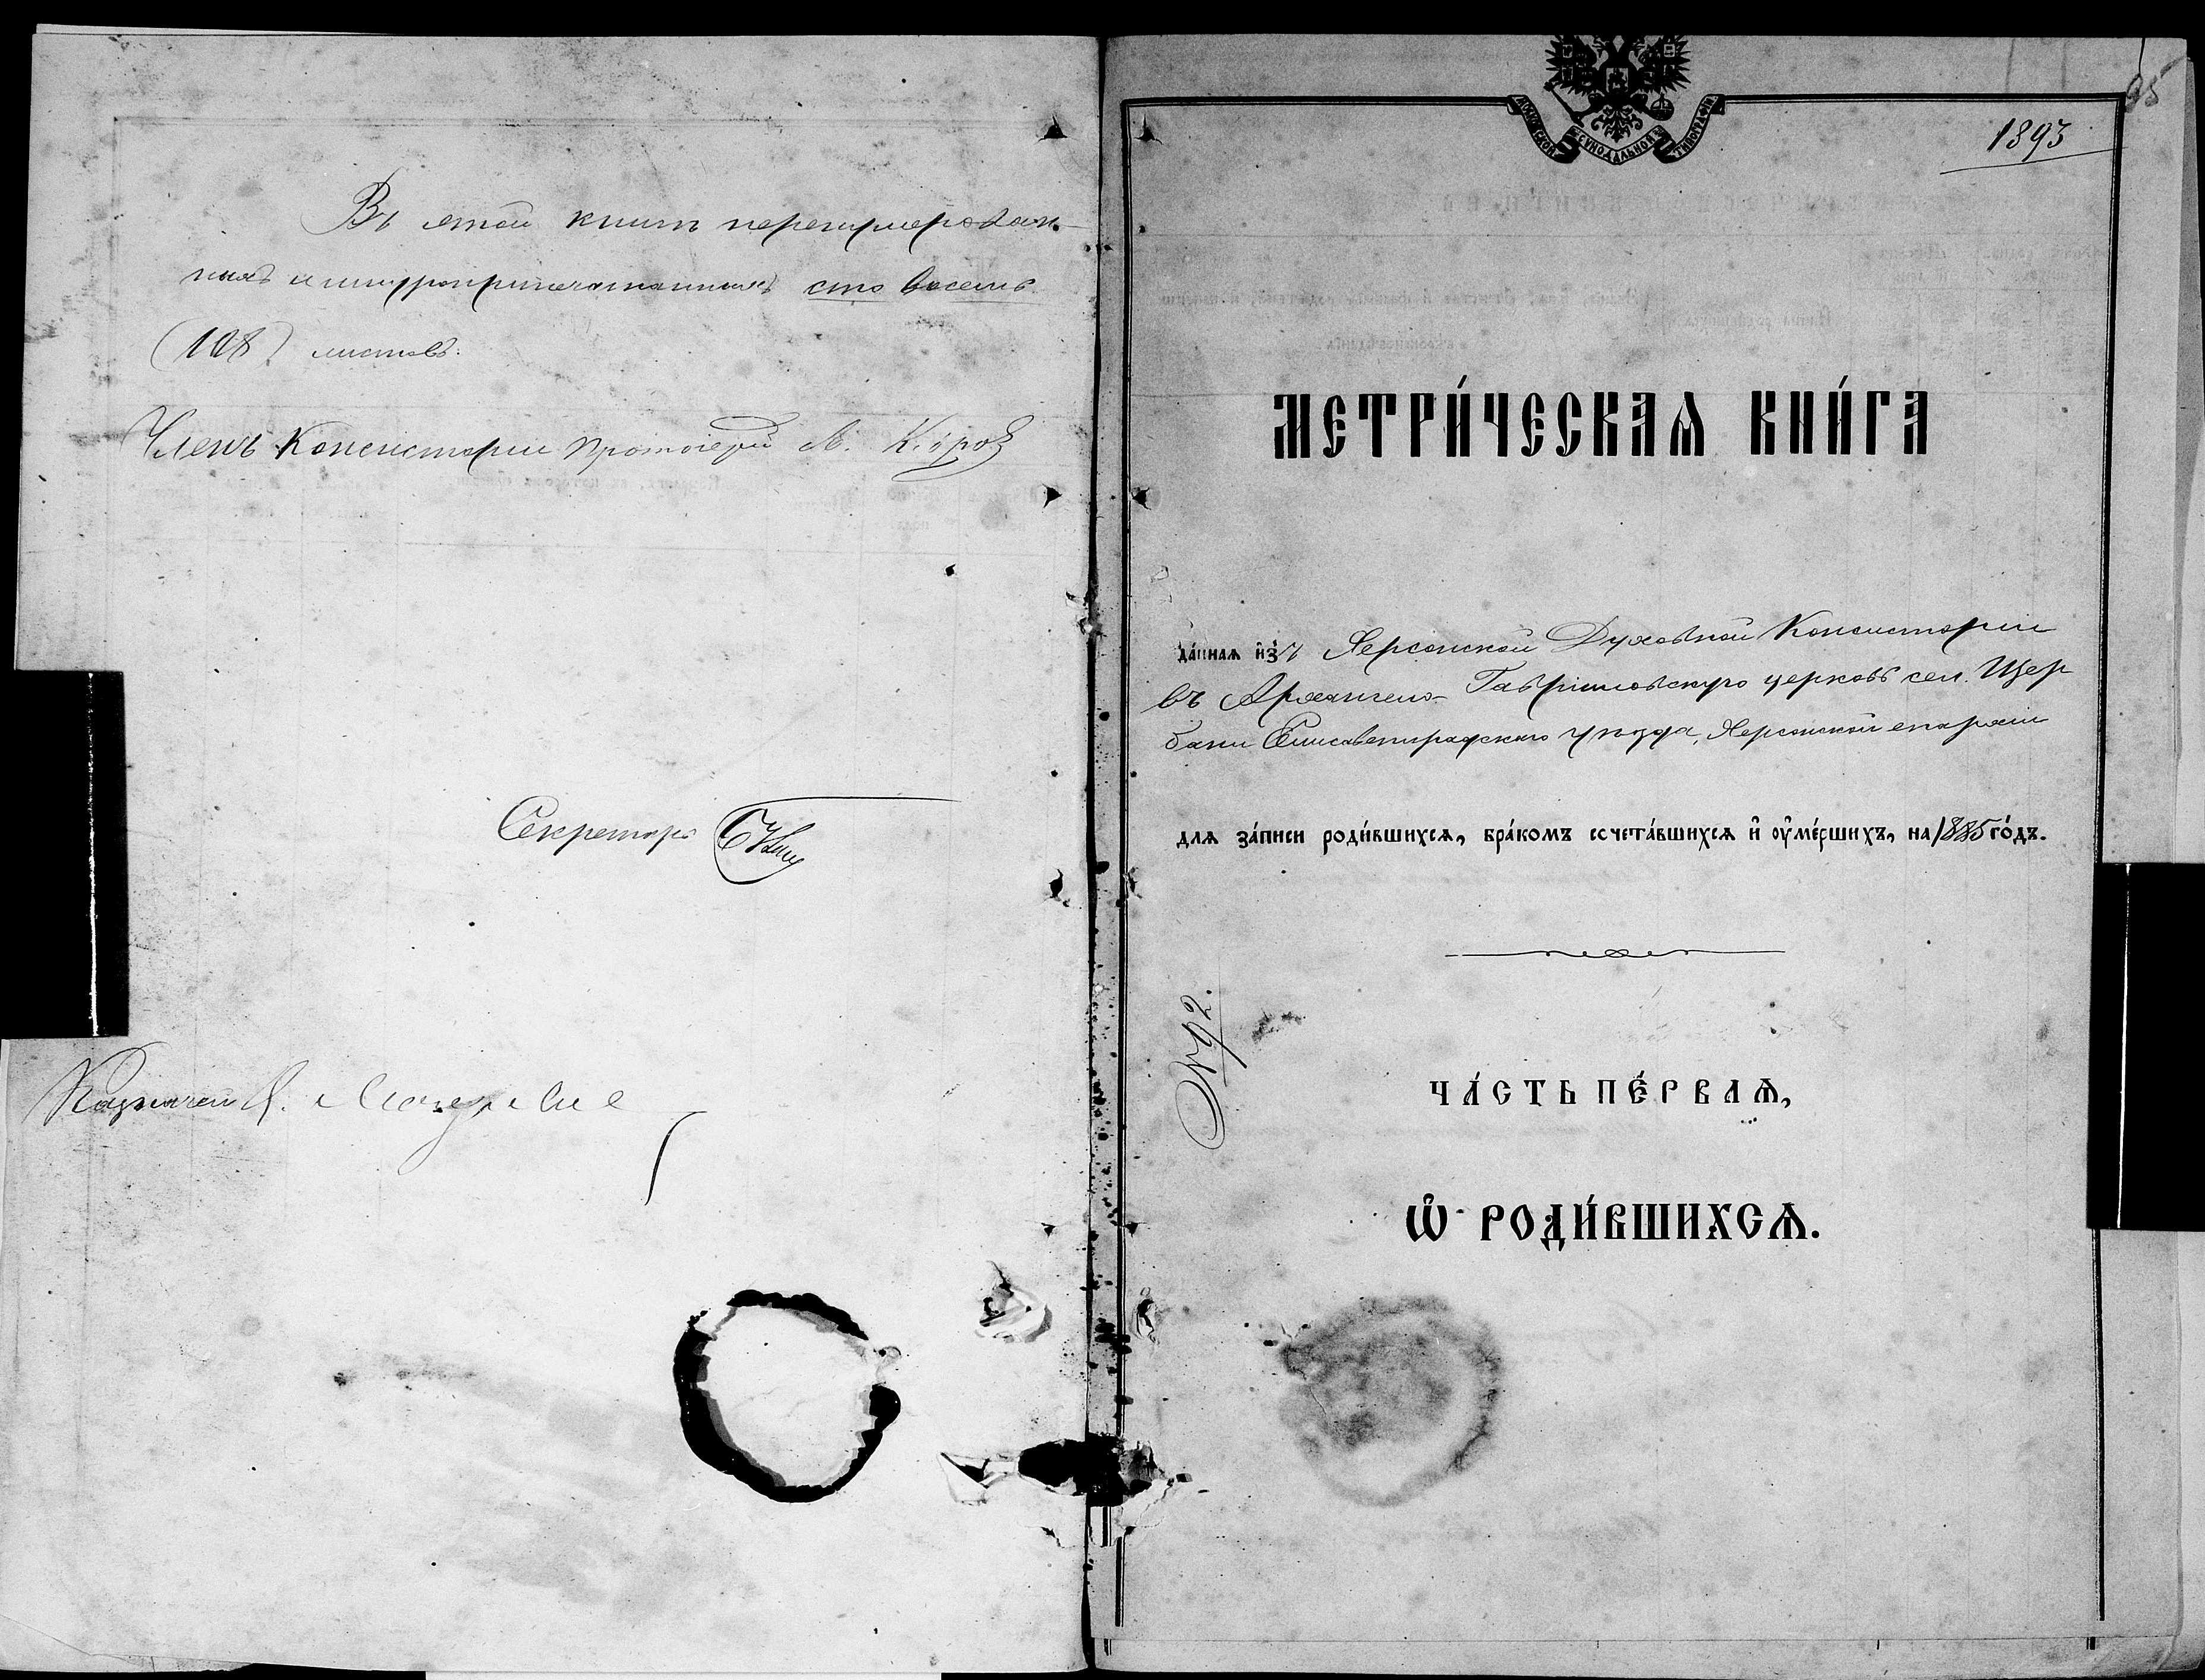 Въ этой книгѣ перенумерован-
ныхъ и шнуроприпечатанныхъ сто восемь
(108) листовъ.
Членъ Консисторіи Протоіерей
Секретарь
Казначей
95
1893
МОСКОВСКОЙ СѴНОДАЛЬНОЙ ТИПОГРАФІИ
МЕТРИ́ЧЕСКАѦ КНИ́ГА
да́ннаѧ и҆зъ Херсонской Духовной Консисторіи
въ Архангело-Гавріиловскую церковь сел. Щер
бани Елисаветградскаго уѣзда, Херсонской епархіи
длѧ за́писи роди́вшихсѧ, бра́комъ сочета́вшихсѧ и҆ ѹ҆ме́ршихъ, на 1885 го́дъ.
№92.
ЧА́СТЬ ПЕ́РВАѦ,
Ѡ҆ РОДИ́ВШИХСѦ.